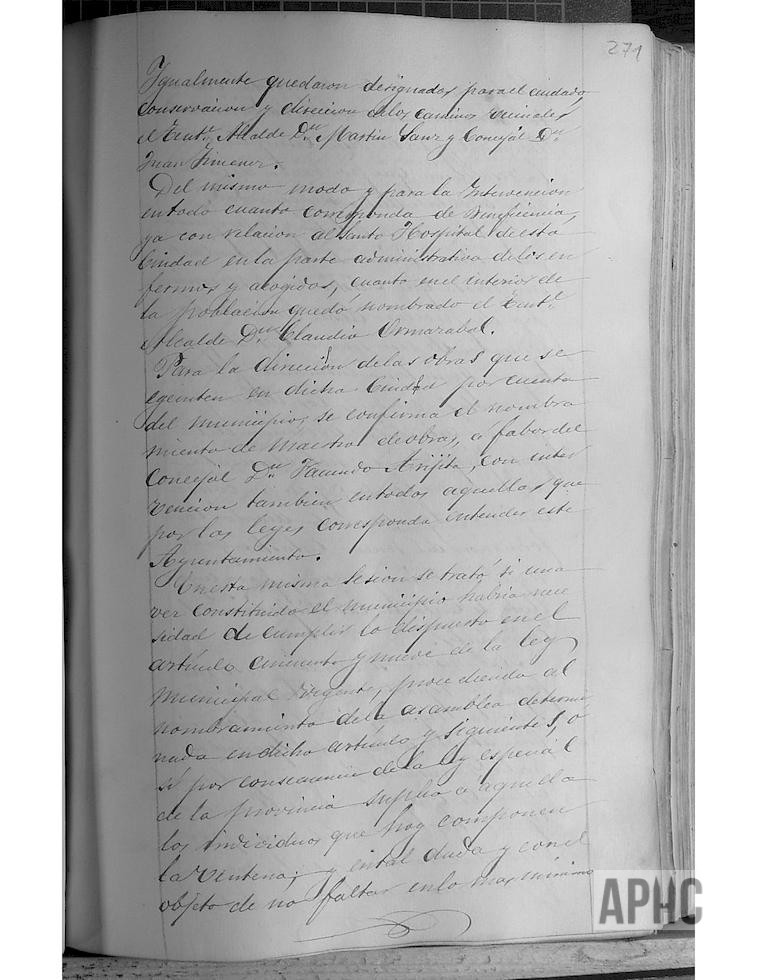 271
Igualmente quedaron designados para el cuidado,
conservacion y direccion de los caminos vecinales
el Tente. Alcalde Dn. Martin Sanz y Concejal Dn.
Juan Jimenez.
Del mismo modo y para la Intervencion
en todo cuanto corresponda de Beneficencia,
ya con relacion al Santo Hospital de esta
Ciudad en la parte administrativa de los en
fermos y acogidos, cuanto en el interior de
la poblacion quedó nombrado el Tente.
Alcalde Dn. Claudio Ormazabal.
Para la direccion de las obras que se
egecuten en dicha Ciudad por cuenta
del municipio, se confirma el nombra
miento de Maestro de obras, á fabor del
Concejal Dn. Facundo Arijita, con inter
vencion tambien en todos aquellos que
por las leyes corresponda entender este
Ayuntamiento.
En esta misma Sesion se trató si una
vez constituido el municipio habria nece
sidad de cumplir lo dispuesto en el
artículo cincuenta y nueve de la ley
municipal vigente, procediendo al
nombramiento de la asamblea determi
nada en dicho artículo y siguientes, ó
si por consecuencia de la ley especial
de la provincia suplia á aquella
los individuos que hoy componen
la Veintena; y en tal duda y con el
objeto de no faltar en lo mas mínimo
APHC